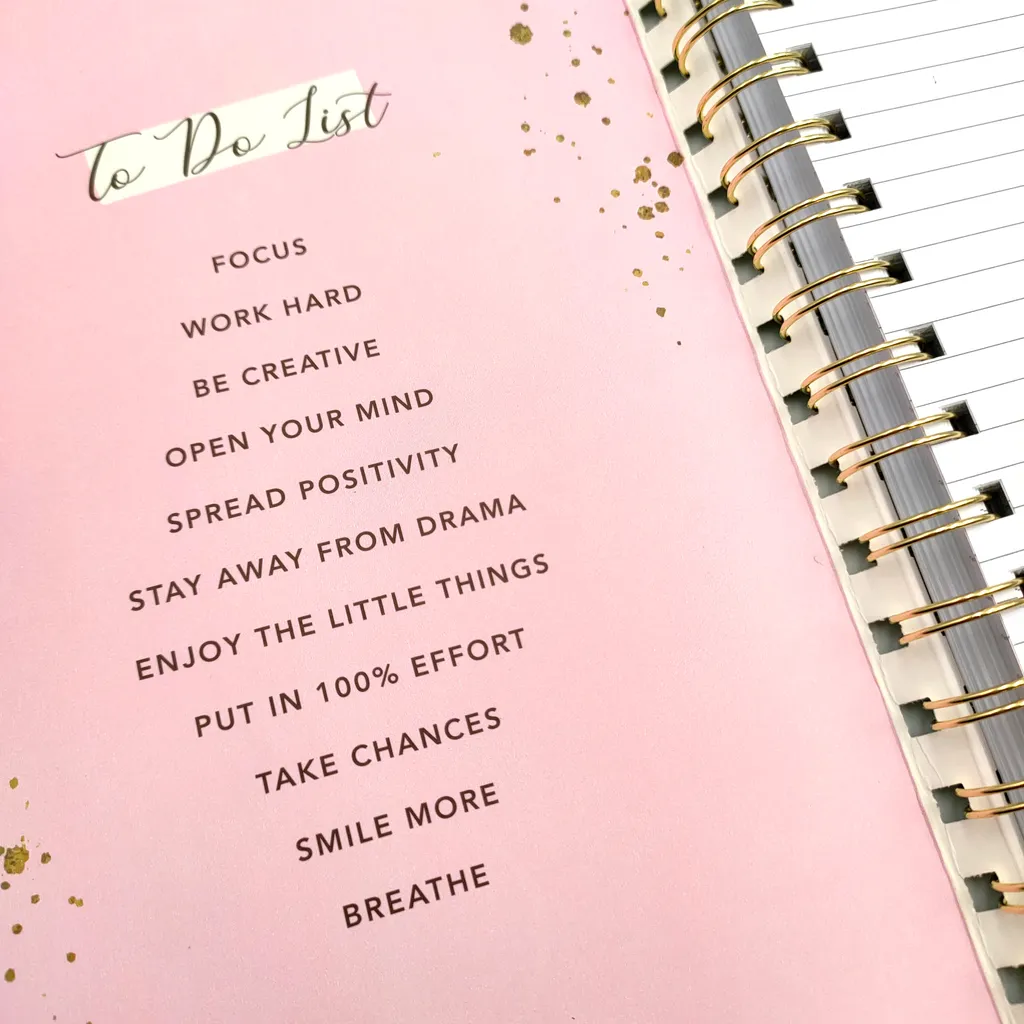 To Do List
FOCUS
WORK HARD
BE CREATIVE
OPEN YOUR MIND
SPREAD POSITIVITY
STAY AWAY FROM DRAMA
ENJOY THE LITTLE THINGS
PUT IN 100% EFFORT
TAKE CHANCES
SMILE MORE
BREATHE